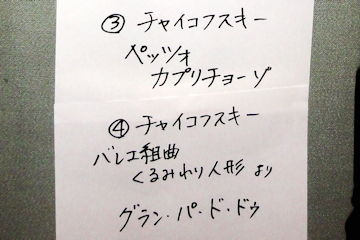 ③ チャイコフスキー
ペッツォ
カプリチョーゾ
④ チャイコフスキー
バレエ組曲
くるみわり人形 より
グラン・パ・ド・ドゥ